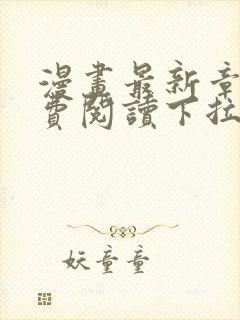 漫畫最新章
費閱讀下拉
妖童童